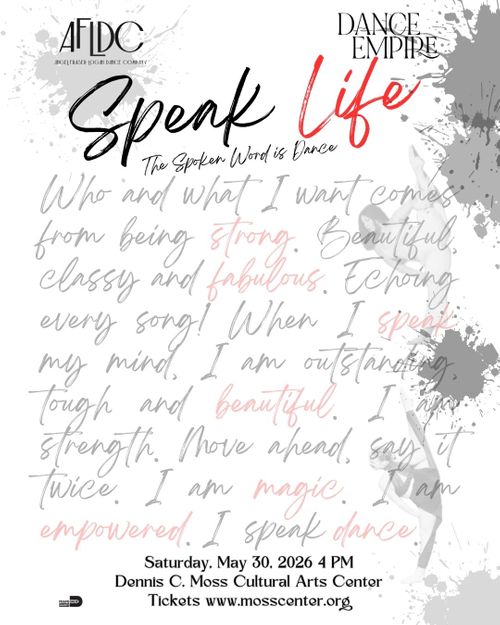 AFLDC
ANGEL FRASER LOGAN DANCE COMPANY
DANCE
EMPIRE
Speak Life
The Spoken Word is Dance
Who and what I want comes
from being strong. Beautiful,
classy and fabulous. Echoing
every song! When I speak
my mind, I am outstanding
tough and beautiful. I am
strength. Move ahead, say it
twice. I am magic. I am
empowered. I speak dance.
Saturday, May 30, 2026 4 PM
Dennis C. Moss Cultural Arts Center
Tickets www.mosscenter.org